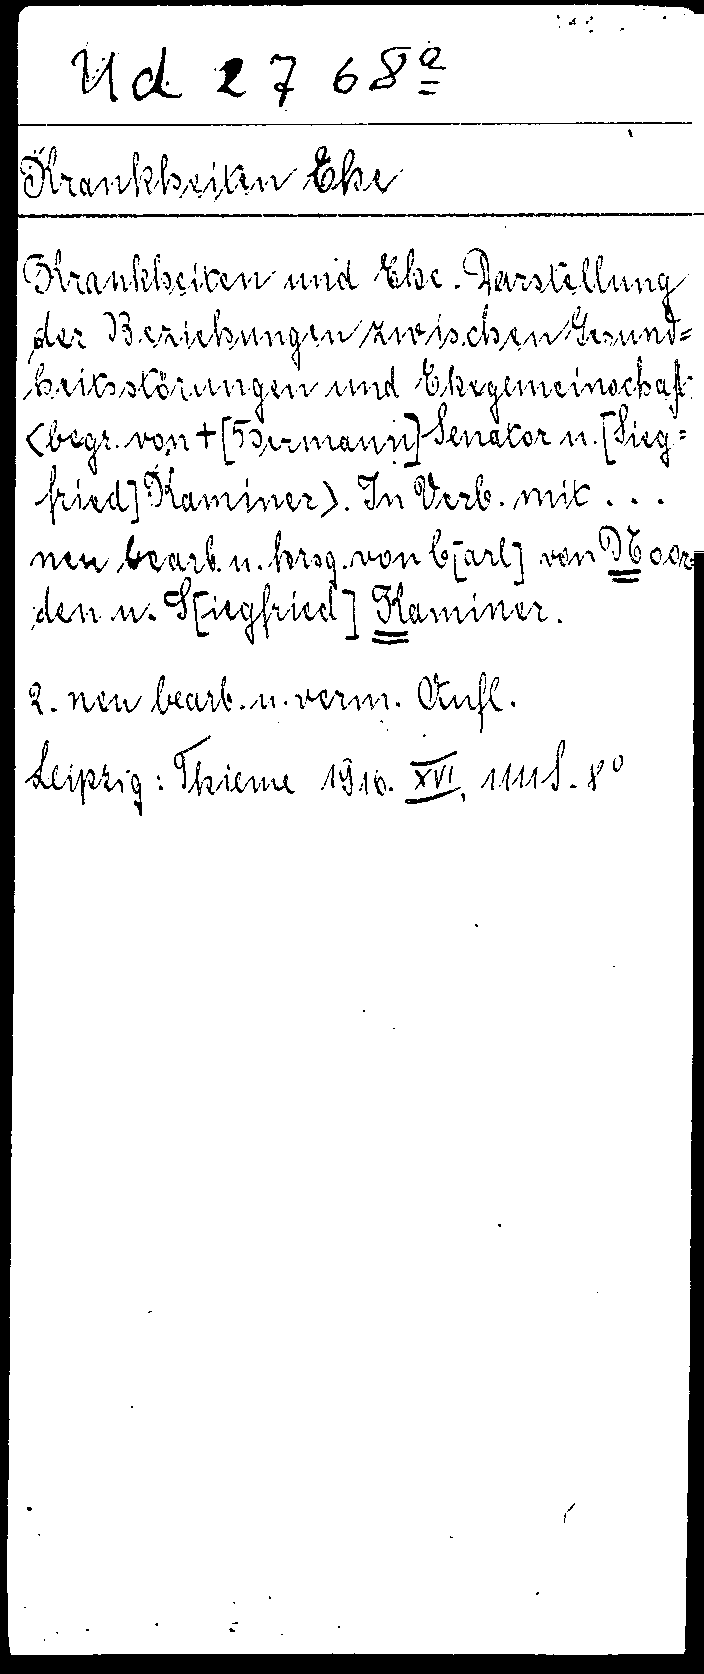 Ud 2768ª
Krankheiten Ehe
Krankheiten und Ehe. Darstellung
der Beziehungen zwischen Gesund=
heitsstörungen und Ehegemeinschaft
<begr. von †[Hermann] Senator u. [Sieg=
fried] Kaminer>. In Verb. mit ...
neu bearb. u. hrsg. von C[arl] von Noor
den u. S[iegfried] Kaminer.
2. neu bearb. u. verm. Aufl.
Leipzig: Thieme 1916. XVI, 1111 S. 8°